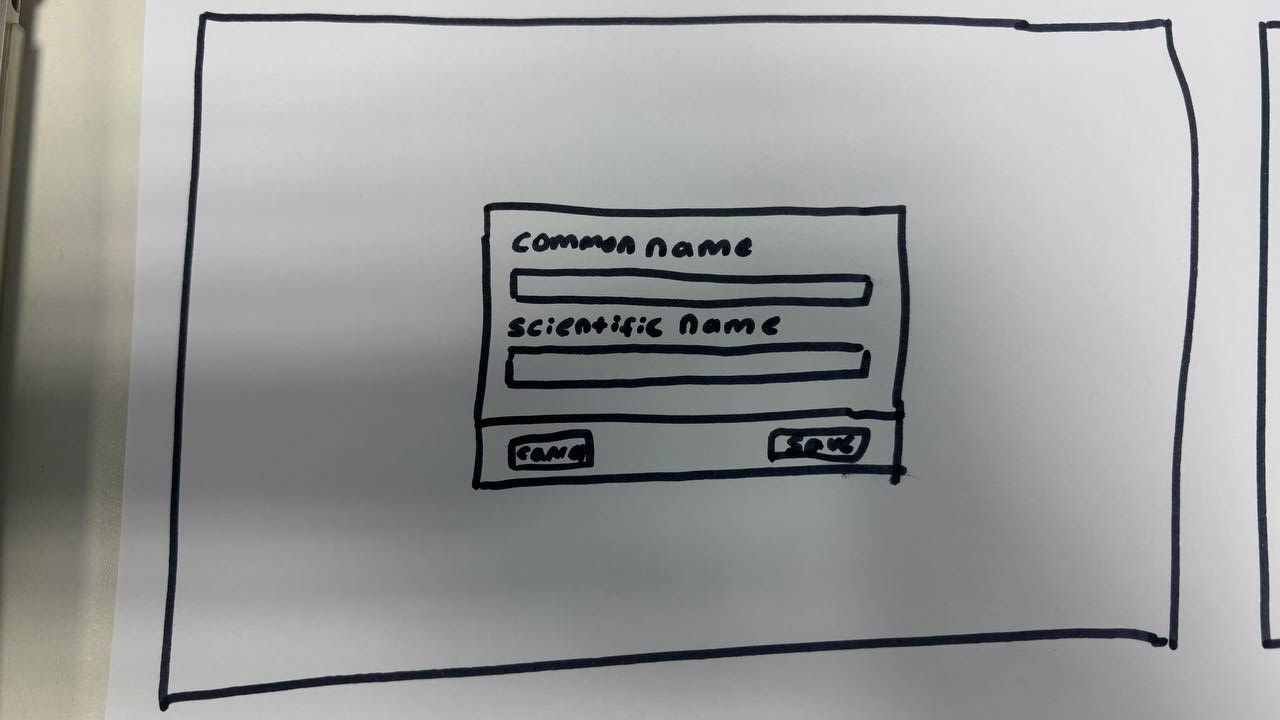 common name
scientific name
save